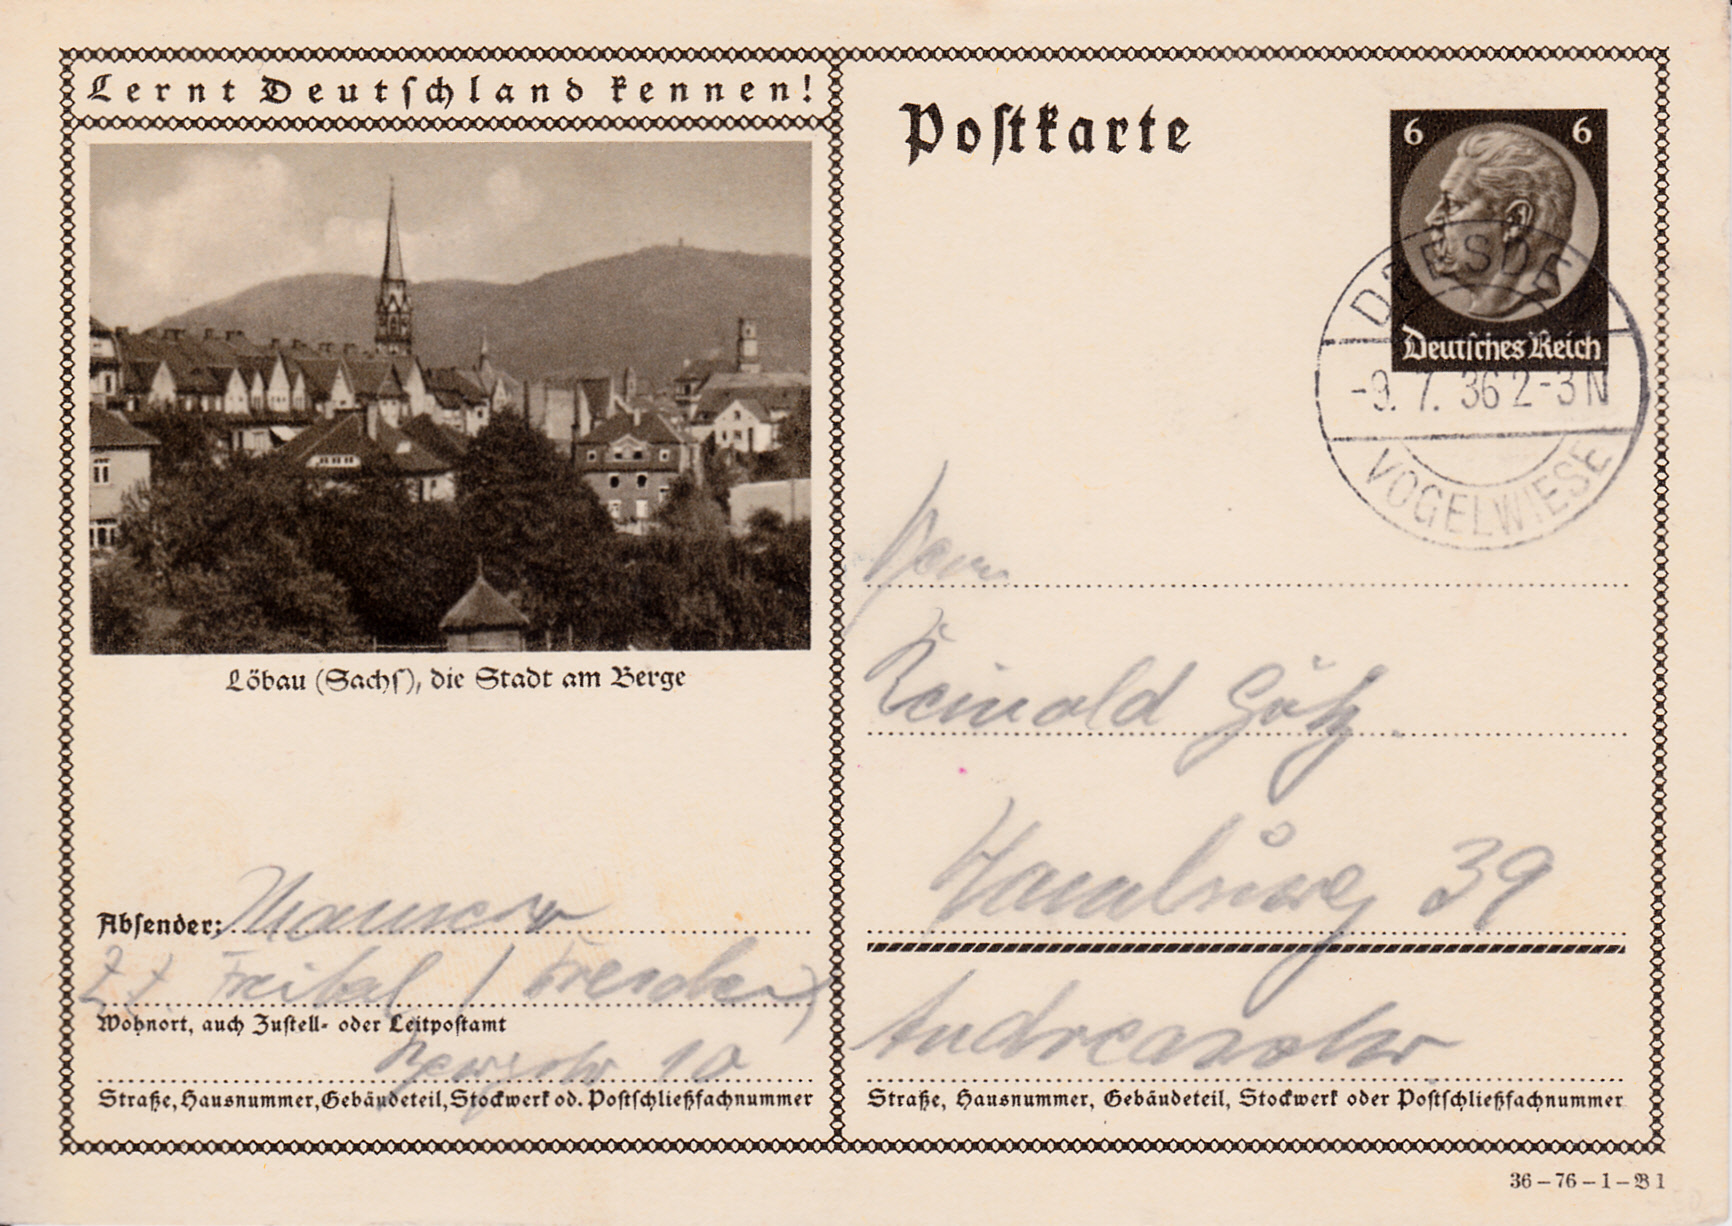 Lernt Deutschland kennen!
Löbau (Sachs), die Stadt am Berge
Absender:
Freital / Dresden
Wohnort, auch Zustell- oder Leitpostamt
10
Straße, Hausnummer, Gebäudeteil, Stockwerk od. Postschließfachnummer
Postkarte
6 6
Deutsches Reich
DRESDEN
-9. 7. 36 2-3 N
VOGELWIESE
Herrn
Reinold Götz
Hamburg 39
Straße, Hausnummer, Gebäudeteil, Stockwerk oder Postschließfachnummer
36 – 76 – 1 – B 1